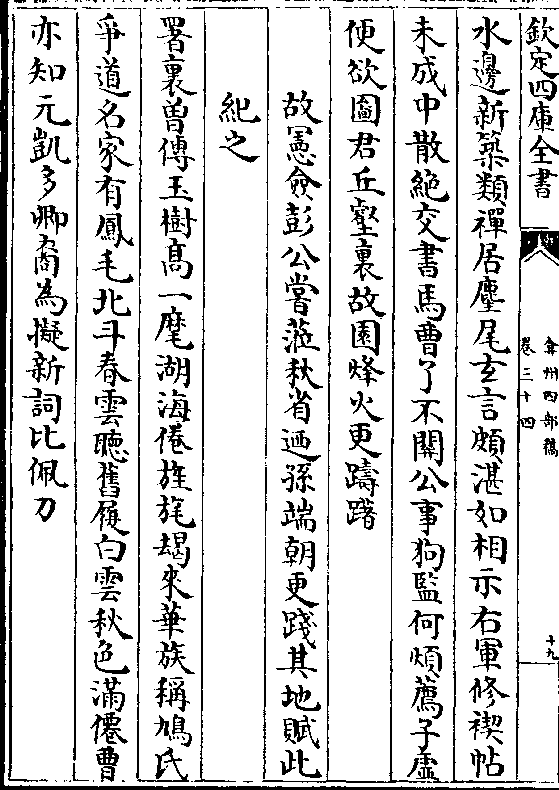 欽定四庫全書
弇州四部稿
卷三十四
十九
水邊新築類禪居麈尾玄言頗湛如相示右軍修禊帖
未成中散絶交書馬曹了不關公事狗監何煩薦子虛
便欲圖君丘壑裏故園烽火更躊躇
故憲僉彭公嘗蒞秋省廼孫端朝更踐其地賦此
紀之
署裏曽傳玉樹髙一麾湖海倦旌旄朅來華族稱鳩氏
爭道名家有鳳毛北斗春雲聽舊履白雲秋色滿僊曹
亦知元凱多卿裔為擬新詞比佩刀